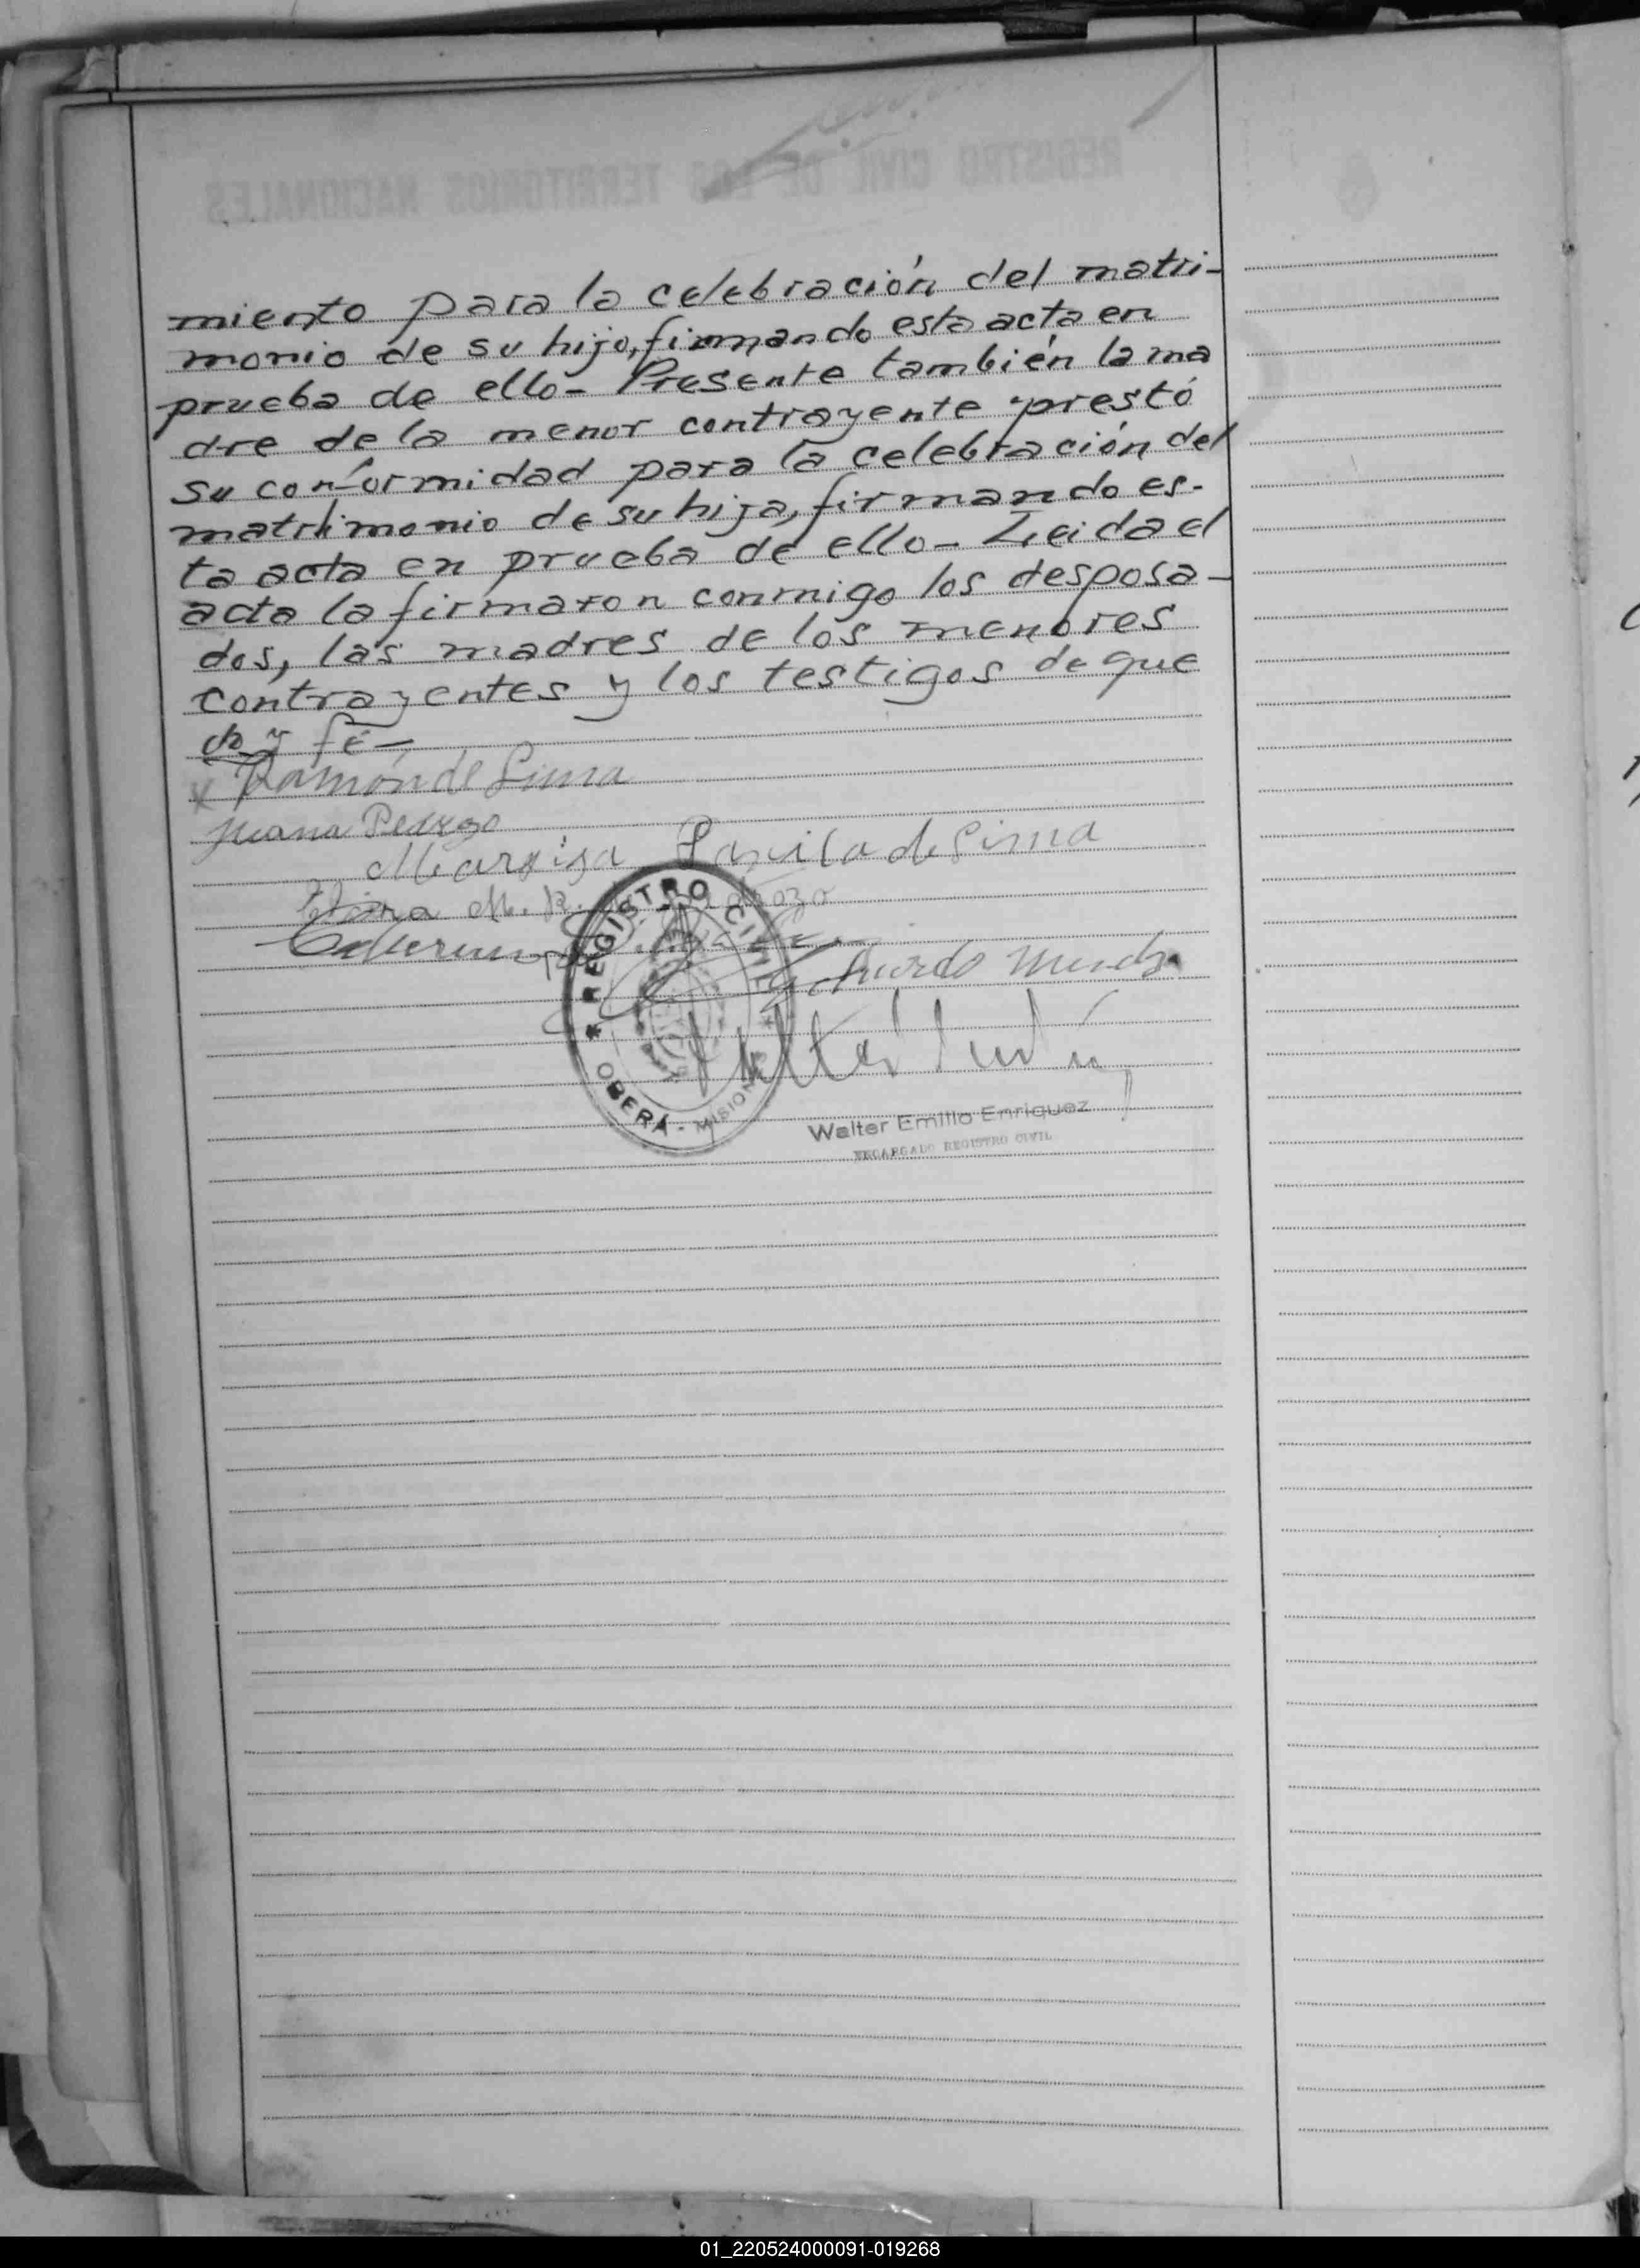 REGISTRO CIVIL DE LOS TERRITORIOS NACIONALES
miento para la celebración del matri-
monio de su hijo, firmando esta acta en
prueba de ello- Presente también la ma
dre de la menor contrayente prestó
su conformidad para la celebración del
matrimonio de su hija, firmando es-
ta acta en prueba de ello- Leida el
acta la firmaron conmigo los desposa-
dos, las madres de los menores
contrayentes y los testigos de que
doy fé-
x Ramón de Lima
Juana Pedrozo
de Lima
M. R.
REGISTRO CIVIL
OBERÁ - MISIONES
Walter Emilio Enriquez
ENCARGADO REGISTRO CIVIL
01_220524000091-019268